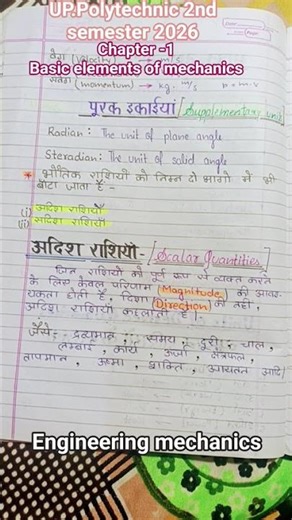 UP.Polytechnic 2nd
semester 2026
Chapter -1
Basic elements of mechanics
वेग (Velocity) → m/s
संवेग (momentum) → kg. m/s
पूरक इकाईयां (Supplementary unit)
Radian: The unit of plane angle
Steradian: The unit of solid angle
* भौतिक राशियों को निम्न दो भागो में भी
बाँटा जाता है -
(i) अदिश राशियाँ
(ii) सदिश राशियाँ
अदिश राशियाँ - (Scalar Quantities)
जिन राशियों को पूर्ण रूप से व्यक्त करने
के लिए केवल परिमाण (Magnitude) की आवश
यकता होती है, दिशा (Direction) की नहीं,
अदिश राशियाँ कहलाती हैं।
जैसे:- द्रव्यमान, समय, दूरी, चाल,
लम्बाई, कार्य, ऊर्जा, क्षेत्रफल,
तापमान, ऊष्मा, शक्ति, आयतन आदि।
Engineering mechanics